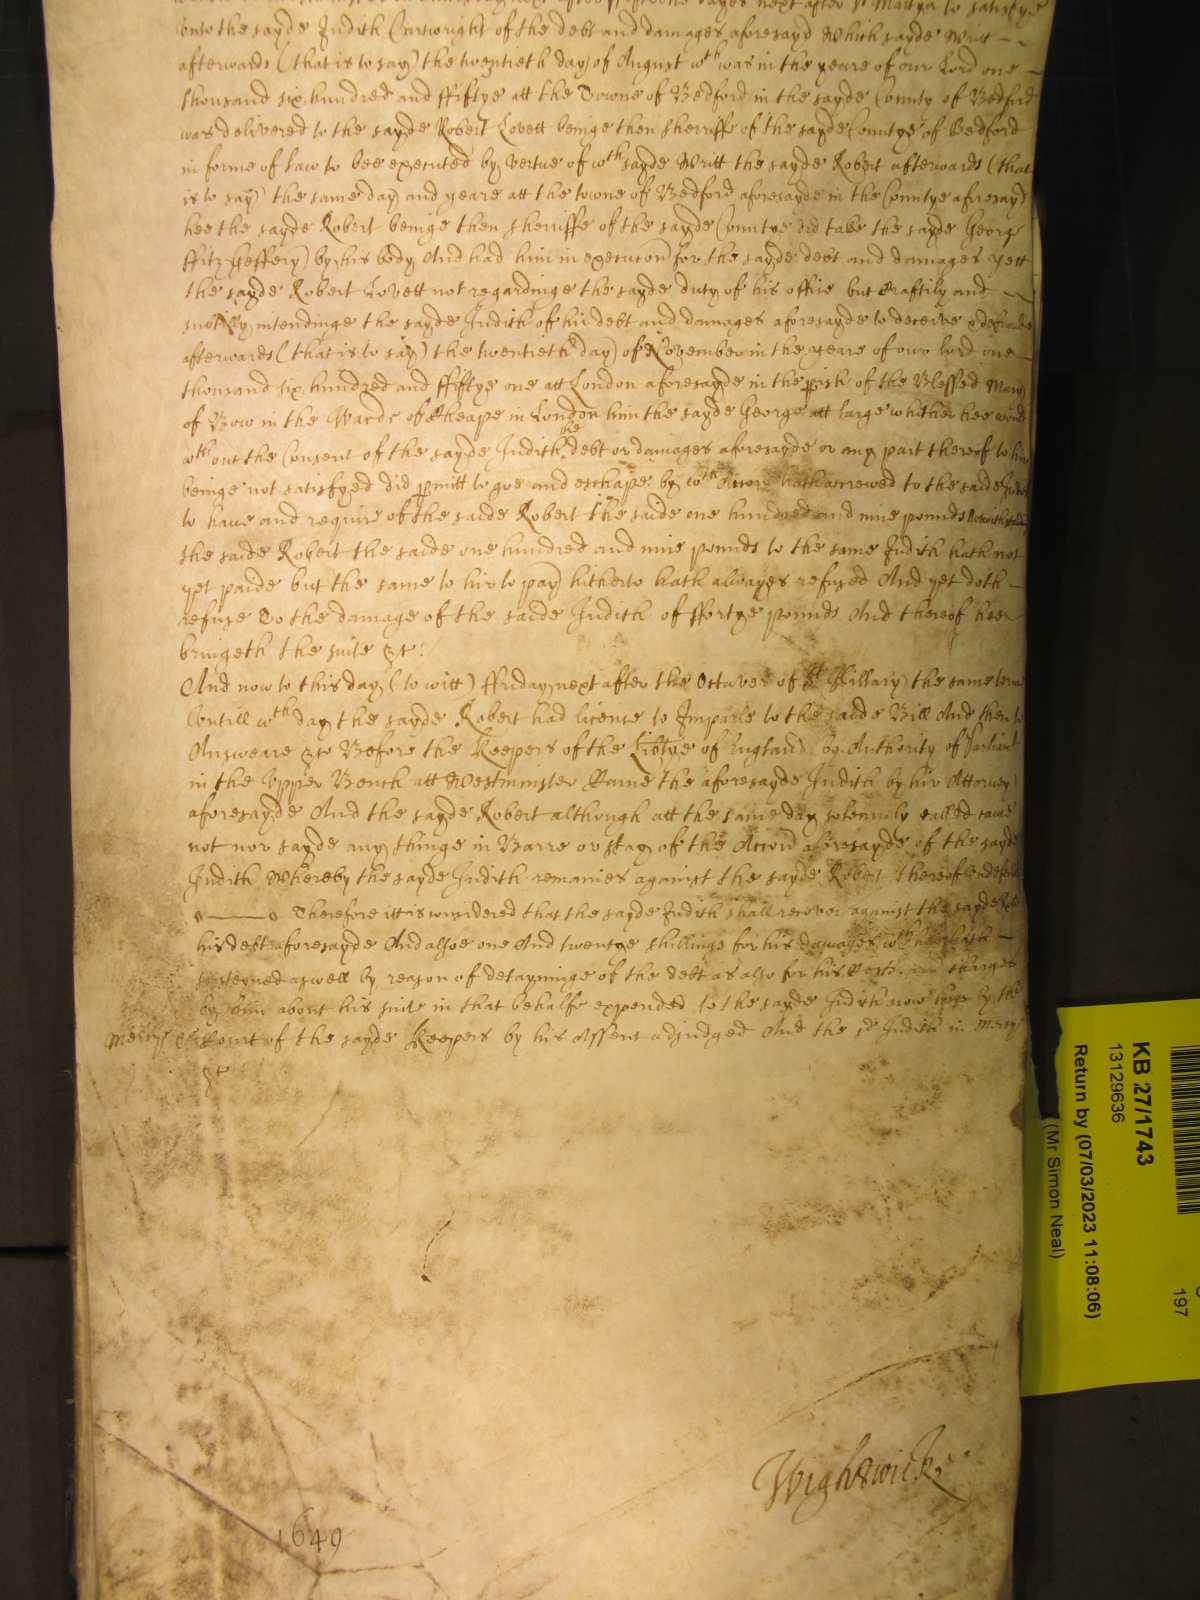 next after fifteene dayes next after St Martyn to satisfye
vnto the sayde Judith Cartwright of the debt and damages aforesayd Which sayde Writt
afterwards (that is to say) the twentieth day of August wch was in the yeare of our Lord one
thousand six hundred and ffiftye att the Towne of Bedford in the sayde County of Bedford
was delivered to the sayde Robert Lovett beinge then Sherriffe of the sayde Countye of Bedford
in forme of law to bee executed by vertue of wch sayde Writt the sayde Robert afterwards (that
is to say) the same day and yeare att the towne of Bedford aforesayde in the Countye aforesayd
hee the sayde Robert beinge then Sherriffe of the sayde Countye did take the sayde George
ffitz Jeffery by his body And had him in execucon for the sayde debt and damages yett
the sayde Robert Lovett not regardinge the sayde duty of his office but Craftily and
subtilly intendinge the sayde Judith of hir debt and damages aforesayde to deceive & defraude
afterwards (that is to say) the twentieth day of November in the yeare of our lord one
thousand six hundred and ffiftye one att London aforesayde in the pish of the Blessed Mary
of Bow in the Warde of Cheape in London him the sayde George att large whither hee would
wthout the Consent of the sayde Judith the debt or damages aforesayde or any part thereof to hir
beinge not satisfyed did pmitt to goe and eschape by wch Accon hath accrewed to the saide Judith
to haue and require of the saide Robert the saide one hundred and nine pounds Notwithstandinge
the saide Robert the saide one hundred and nine pounds to the same Judith hath not
yet paide but the same to hir to pay hitherto hath alwayes refused And yet doth
refuse To the damage of the saide Judith of ffortye pounds And thereof hee
bringeth the suite &c:
And now to this day (to witt) ffriday next after the Octaves of St Hillary the same terme
Vntill wch day the sayde Robert had license to Imparle to the saide Bill And then to
Answeare &c Before the Keepers of the Libtye of England by Authority of Parliamt
in the Vpper Bench att Westminster Came the aforesayde Judith by hir Attorney
aforesayde And the sayde Robert although att the same day solemnly called came
not nor sayde any thinge in Barre or stay of the Accon aforesayde of the sayde
Judith Whereby the sayde Judith remaines against the sayde Robert thereof vndefended
Therefore itt is considered that the sayde Judith shall recover against the sayde Robt
his debt aforesayde And alsoe one And twentye shillings for his damages wch hee hath
susteyned aswell by reason of detayninge of the debt as also for his Costs and charges
by him about his suite in that behalfe expended to the sayde Judith now here by the
Mercy &c Court of the sayde Keepers by his Assent adjudged And the sd Judith in Mercy
&c
Wightwick
1649
KB 27/1743
13129636
Return by (07/03/2023 11:08:06)
(Mr Simon Neal)
197